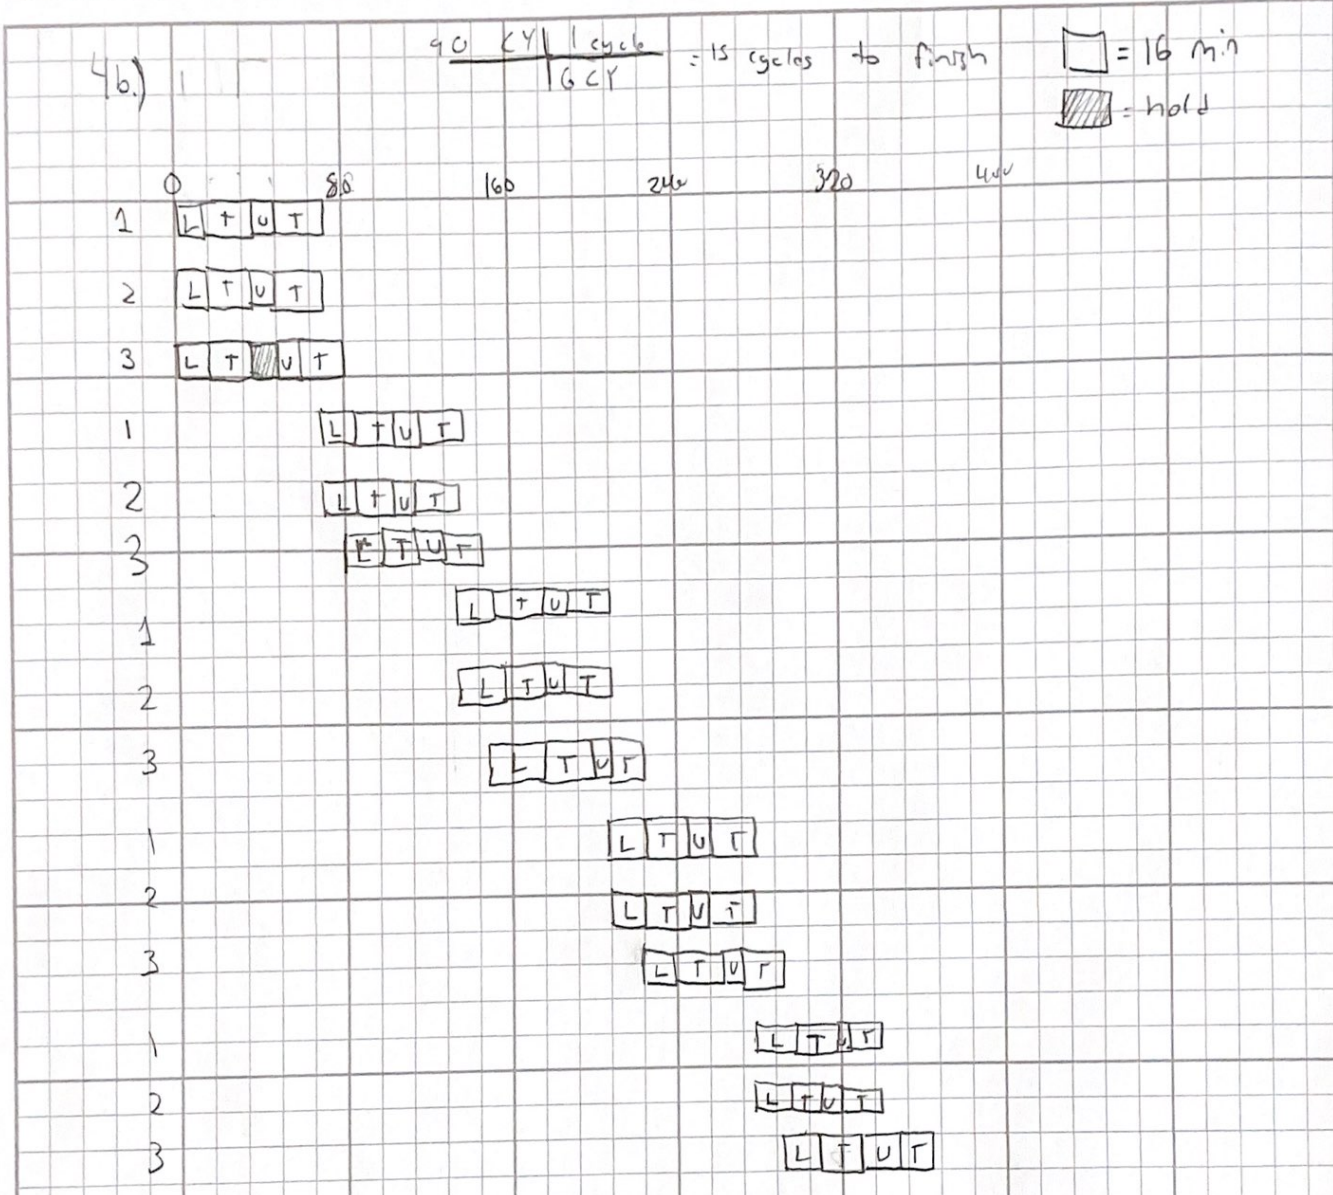 4b.) 90 CY | 1 cycle = 15 cycles to finish □ = 16 min
6 CY = hold
0 80 160 240 320 400
1 L T U T
2 L T U T
3 L T U T
1 L T U T
2 L T U T
3 L T U T
1 L T U T
2 L T U T
3 L T U T
1 L T U T
2 L T U T
3 L T U T
1 L T U T
2 L T U T
3 L T U T